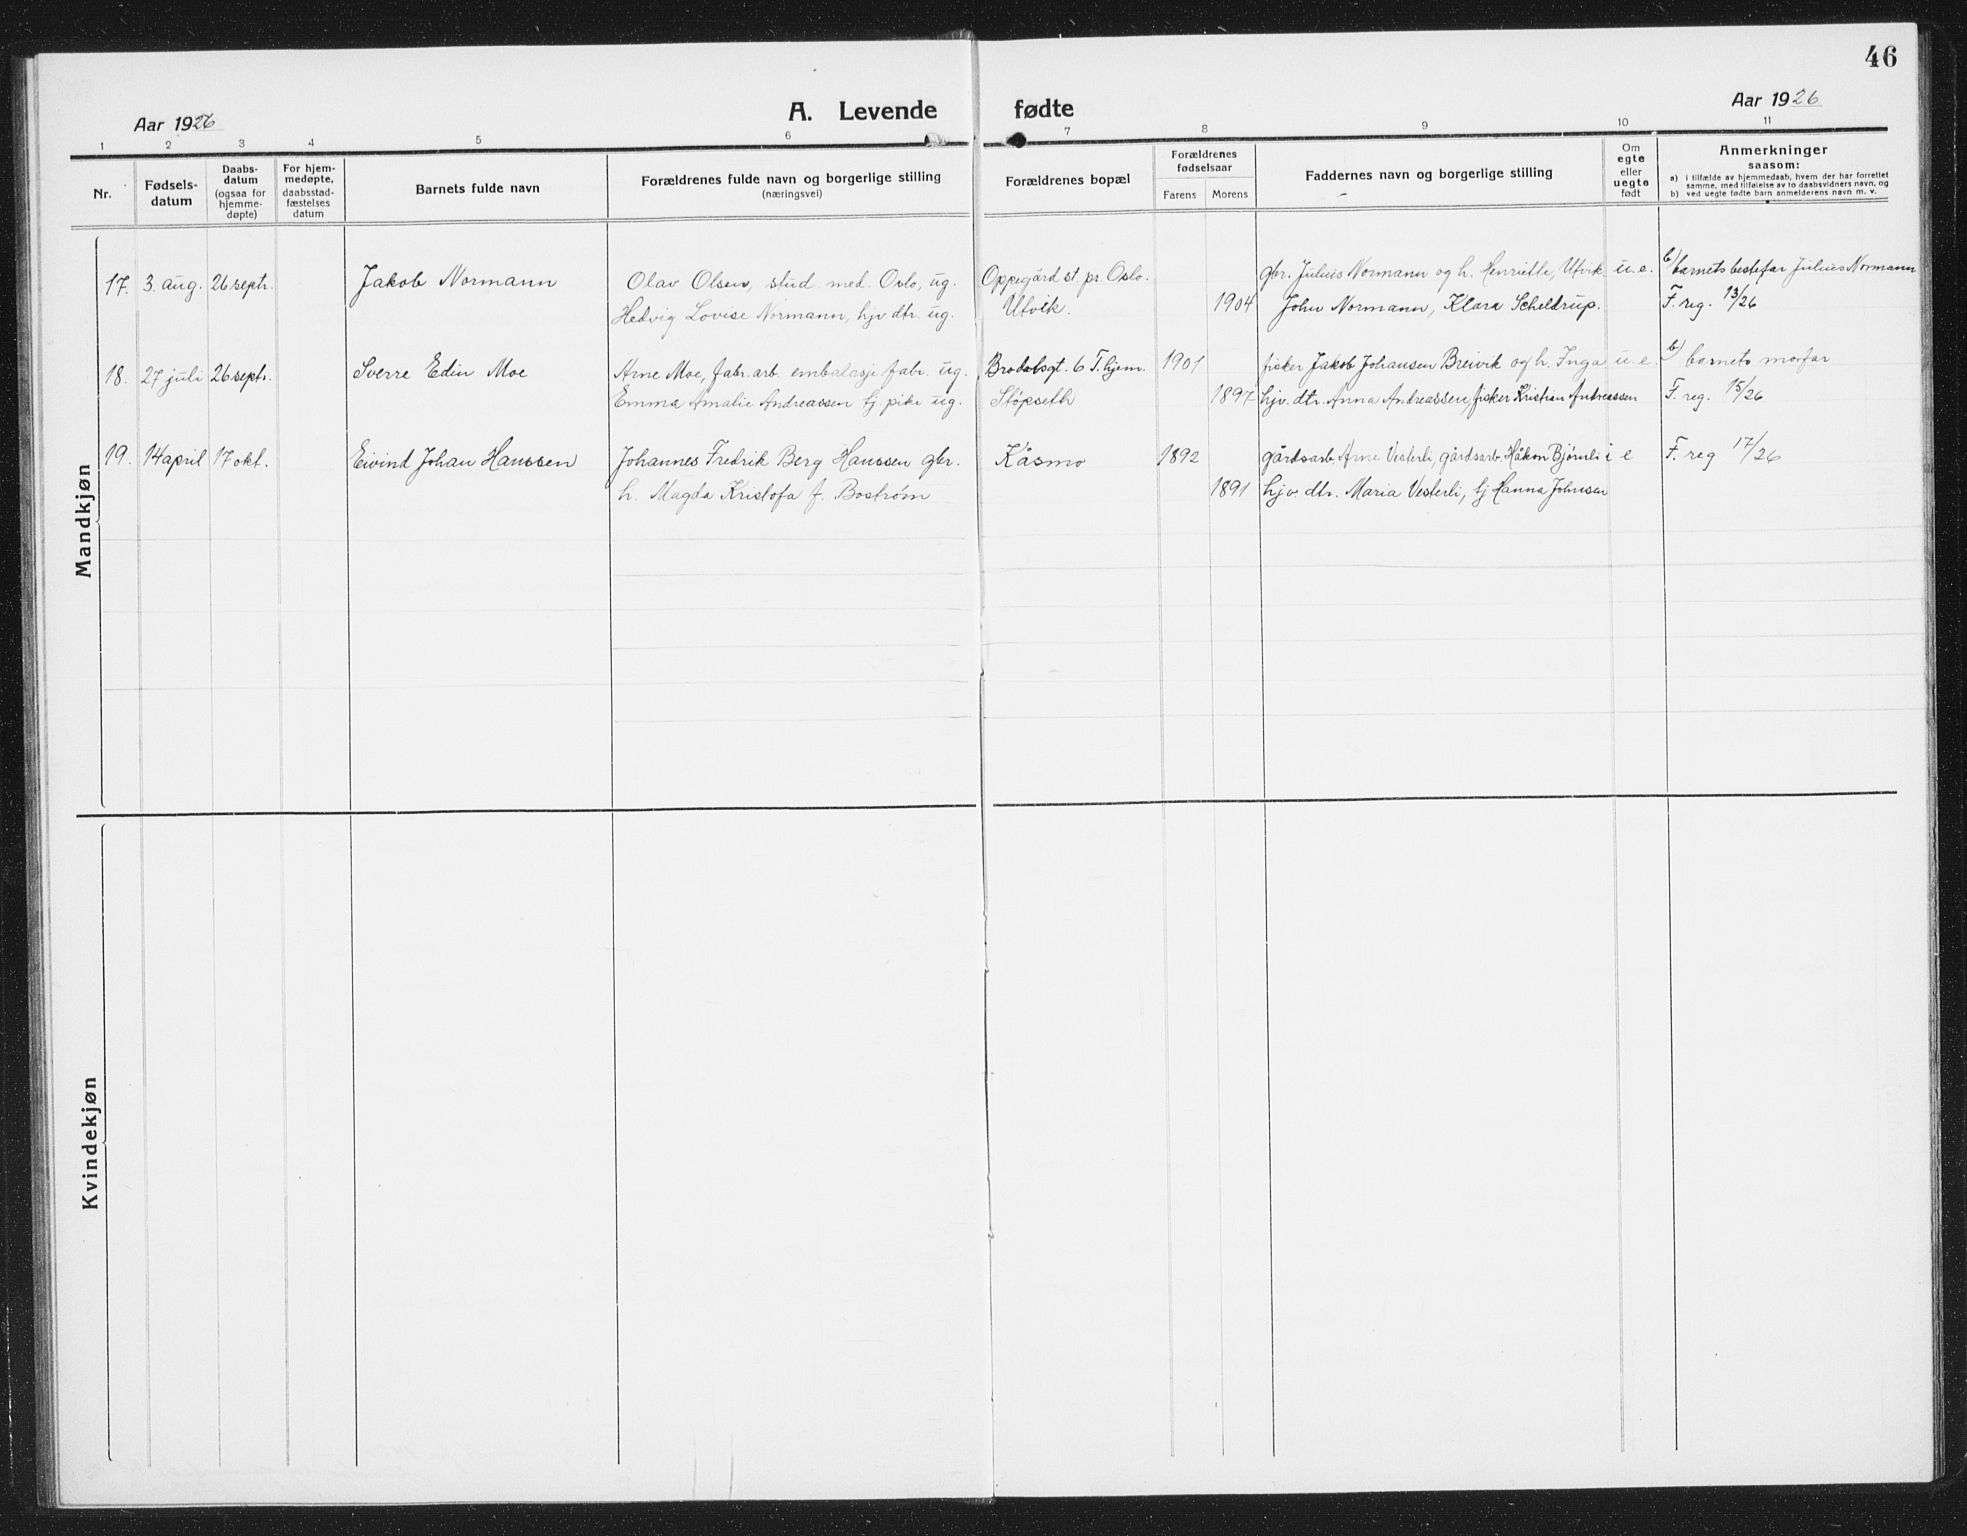 46
Aar 1926
A. Levende fødte
Aar 1926
1 2 3 4 5 6 7 8 9 10 11
Nr.
Fødsels-
datum
Daabs-
datum
(ogsaa for
hjemme-
døpte)
For hjem-
medøpte,
daabsstad-
fæstelses
datum
Barnets fulde navn
Forældrenes fulde navn og borgerlige stilling
(næringsvei)
Forældrenes bopæl
Forældrenes
fødselsaar
Farens Morens
Faddernes navn og borgerlige stilling
Om
egte
eller
uegte
født
Anmerkninger
saasom:
a) i tilfælde av hjemmedaab, hvem der har forrettet
samme, med tilføielse av to daabsvidners navn, og
b) ved uegte fødte barn anmelderens navn m. v.
Mandkjøn
17. 3. aug. 26 septr. Jakob Normann Olav Olsen, stud. med. Oslo, ug. Oppegård st. pr. Oslo. gbr. Julius Normann og h. Henriette, Utvik u. e. b) barnets bestefar Julius Normann
Hedvig Lovise Normann, hjv. dtr. ug. Utvik. 1904 John Normann, Klara Scheldrup. F. reg. 13/26
18. 27 juli 26 septr. Sverre Edin Moe Arne Moe, fabr. arb. embalasje fabr. ug. 6 T.hjem. 1901 fisker Jakob Johansen Breivik og h. Inga u. e. b) barnets morfar
Emma Amalie Andreassen tj. pike ug. Støpseth 1897 hjv. dtr. Anna Andreassen, fisker Kristian Andreassen F. reg. 15/26
19. 14 april 17 okt. Eivind Johan Hanssen Johannes Fredrik Berg Hanssen gbr. Kåsmo 1892 gårdsarb. Arne Vesterli, gårdsarb. Håkon Bjørnli e F. reg 17/26
h. Magda Kristofa f. Bostrøm 1891 hjv. dtr. Maria Vesterli, tj Hanna Johnsen
Kvindekjøn